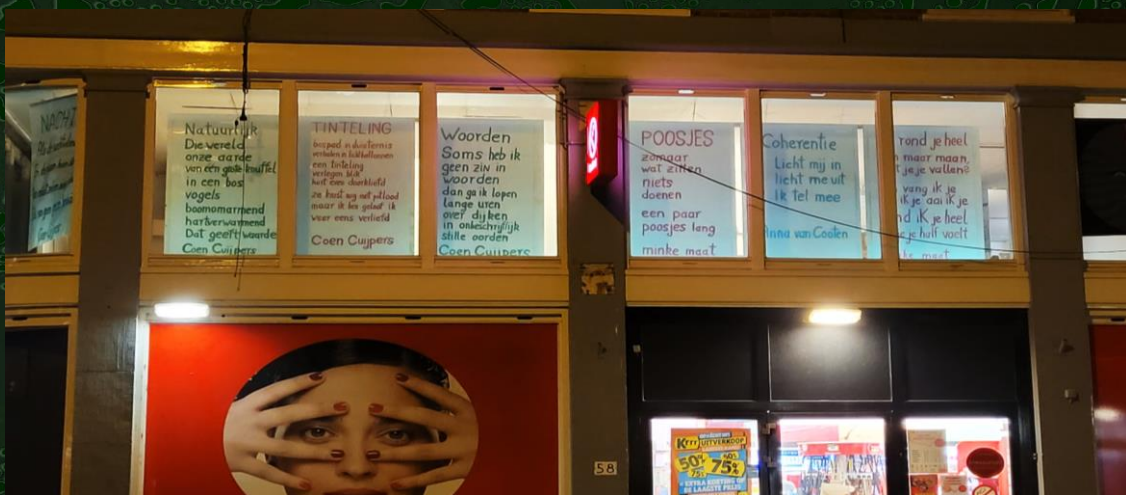 NACHT
Natuurlijk
Die wereld
onze aarde
van een gekke knuffel
in een bos
vogels
boomomarmend
hartverwarmend
Dat geeft waarde
Coen Cuijpers
TINTELING
bospad in duisternis
een tinteling
verlogen blik
ze kust nog net potlood
maar ik ben geloof ik
weer eens verliefd
Coen Cuijpers
Woorden
Soms heb ik
geen zin in
woorden
dan ga ik lopen
lange uren
over dijken
in onbeschrijflijk
stille oorden
Coen Cuijpers
POOSJES
zomaar
wat zitten
niets
doenen
een paar
poosjes lang
minke maat
Coherentie
Licht mij in
licht me uit
Ik tel mee
Anna van Cooten
rond je heel
maar maan,
je je vallen?
vang ik je
ik je aai ik je
nd ik je heel
je half voelt
ke maat
58
UITVERKOOP
50%
75%
50%
75%
+ EXTRA KORTING OP
DE LAAGSTE PRIJS